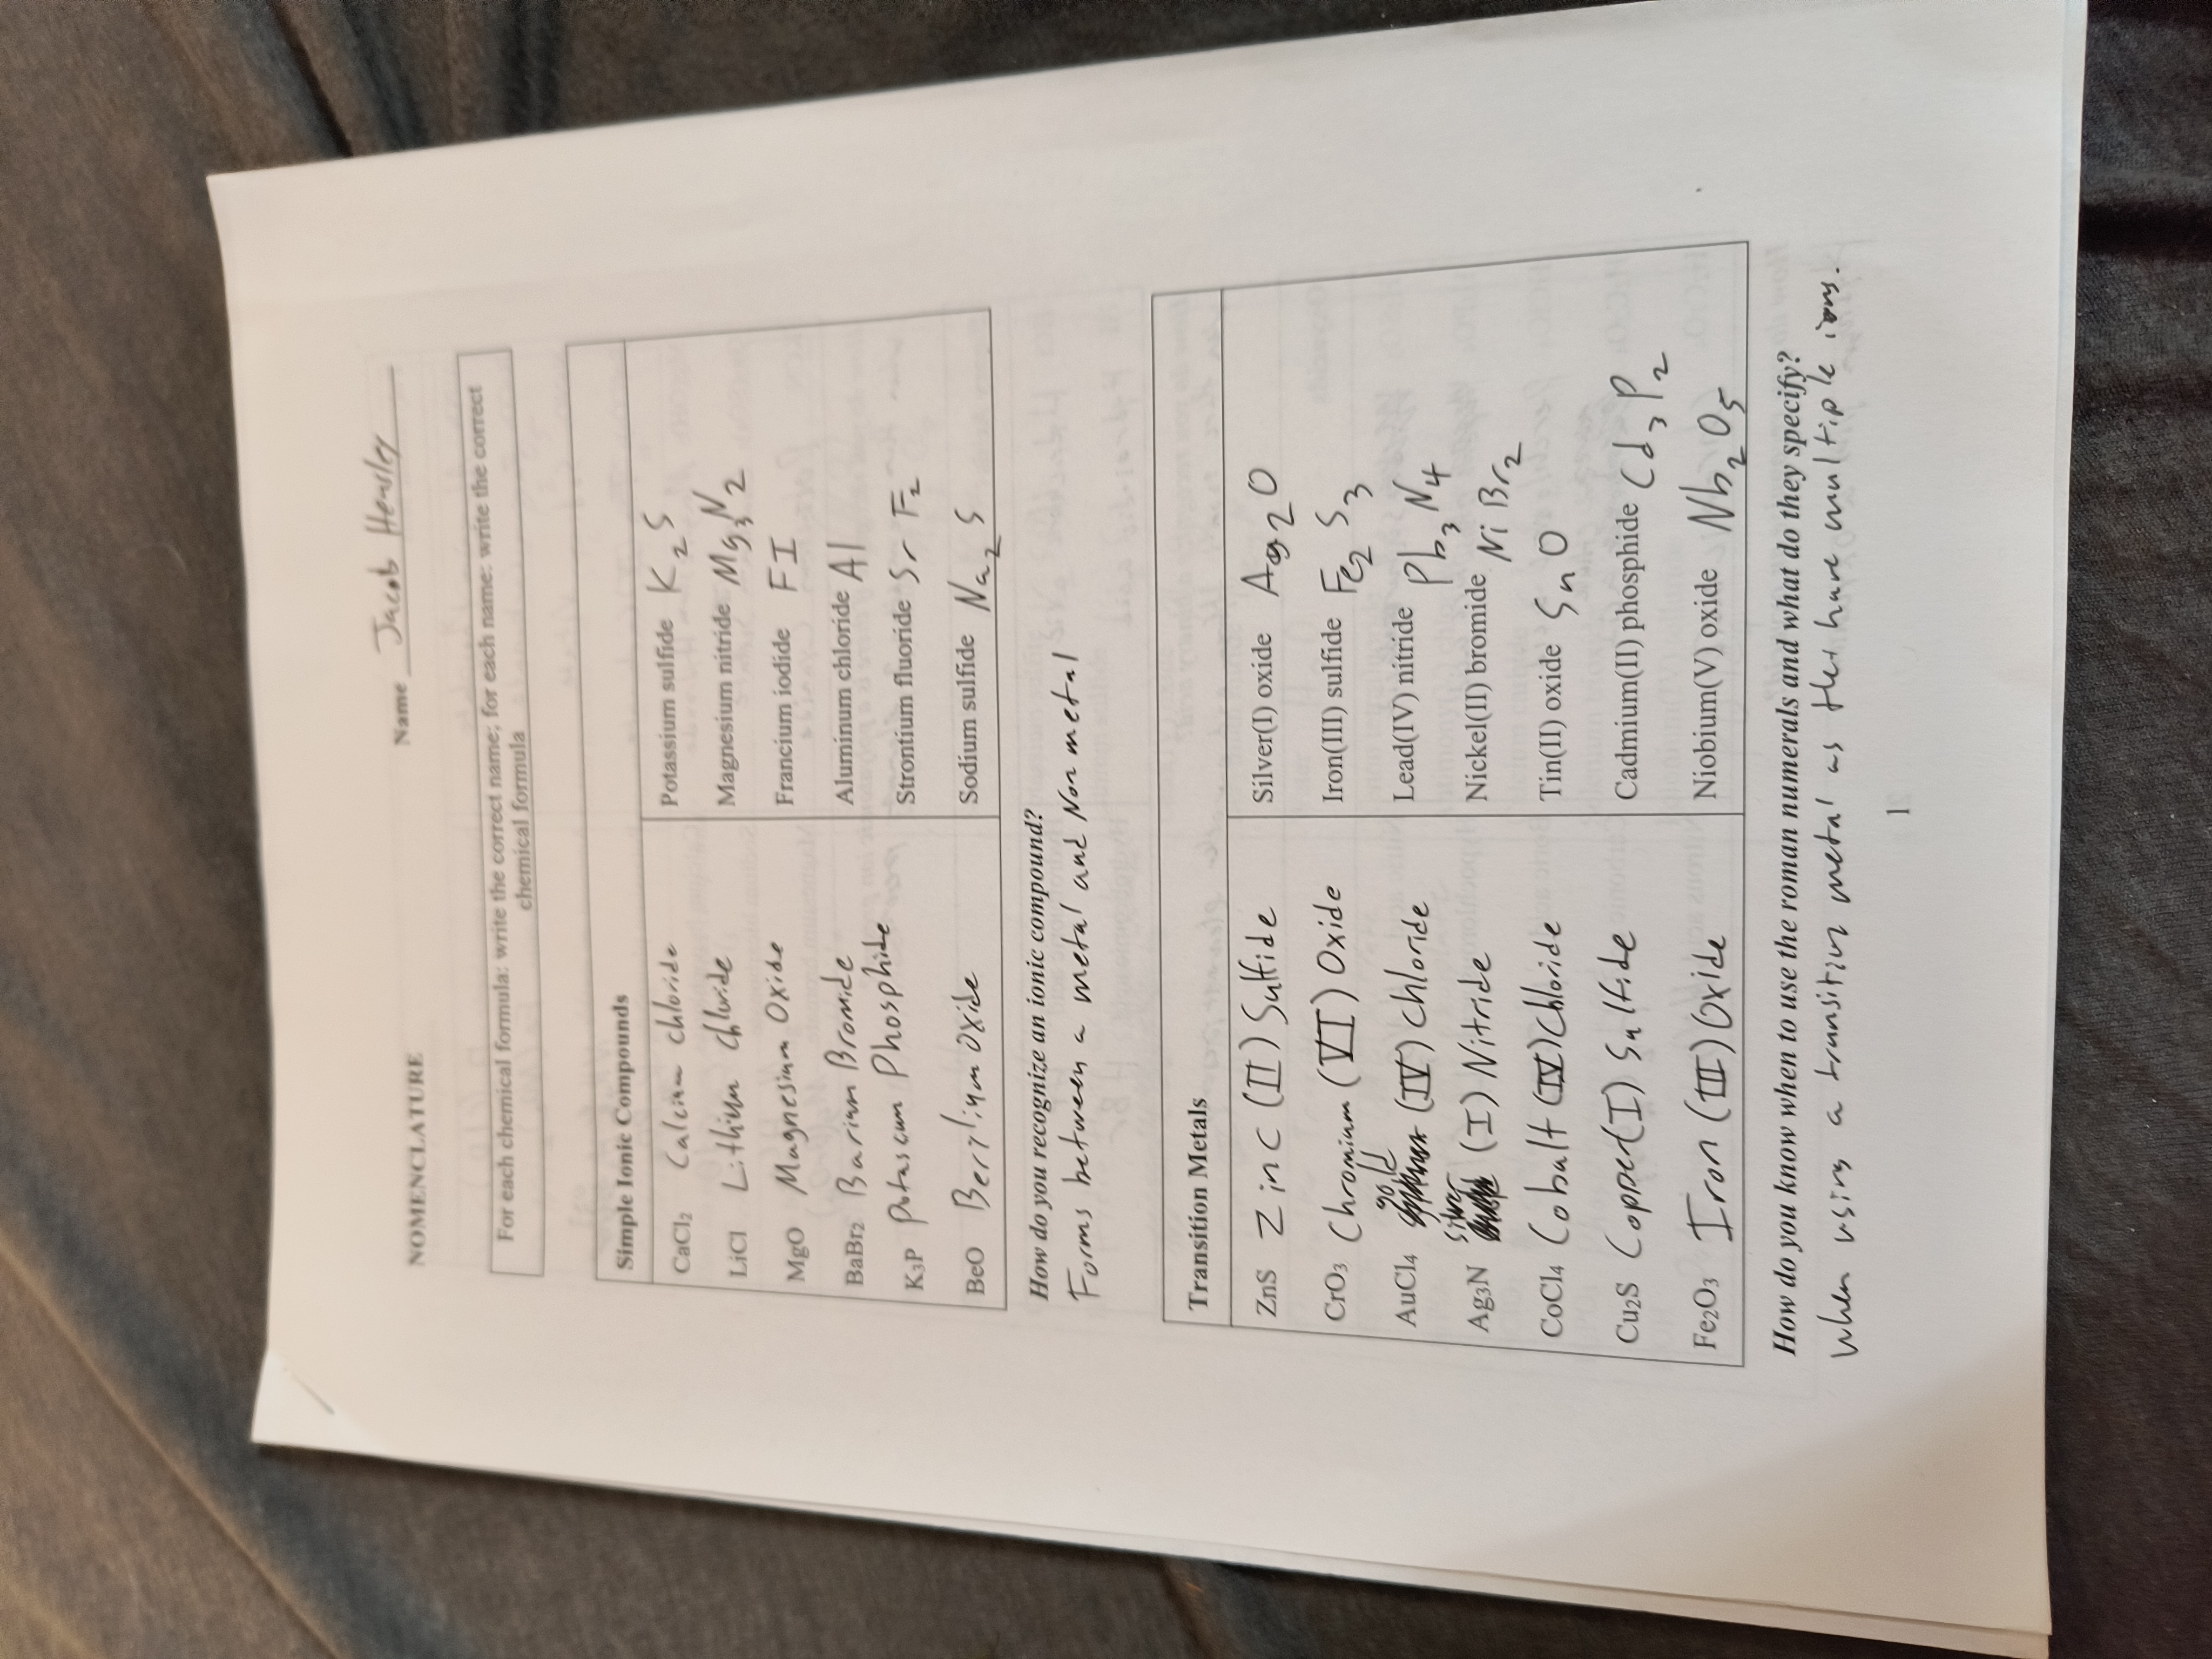 NOMENCLATURE Name Jacob Hensley
For each chemical formula: write the correct name; for each name: write the correct
chemical formula
Simple Ionic Compounds
CaCl₂ Calcium chloride Potassium sulfide K₂S
LiCl Lithium chloride Magnesium nitride Mg₃N₂
MgO Magnesium Oxide Francium iodide FI
BaBr₂ Barium Bromide Aluminum chloride Al
K₃P Potascum Phosphide Strontium fluoride SrF₂
BeO Berylium oxide Sodium sulfide Na₂S
How do you recognize an ionic compound?
Forms between a metal and Non metal
Transition Metals
ZnS Zinc (II) Sulfide Silver(I) oxide Ag₂O
CrO₃ Chromium (VI) Oxide Iron(III) sulfide Fe₂S₃
AuCl₄ gold (IV) chloride Lead(IV) nitride Pb₃N₄
Ag₃N Silver (I) Nitride Nickel(II) bromide NiBr₂
CoCl₄ Cobalt (IV) chloride Tin(II) oxide SnO
Cu₂S Copper (I) Sulfide Cadmium(II) phosphide Cd₃P₂
Fe₂O₃ Iron (III) Oxide Niobium(V) oxide Nb₂O₅
How do you know when to use the roman numerals and what do they specify?
When using a transition metal as they have multiple ions.
1